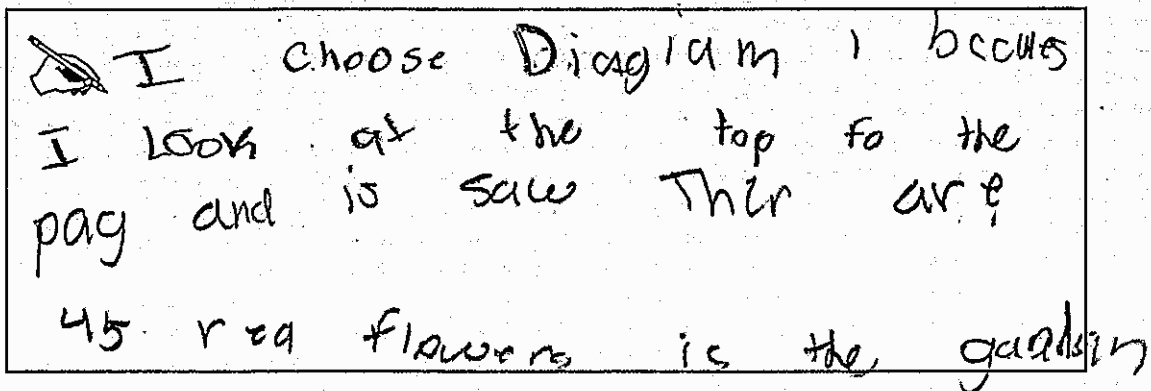 I choose Diagram 1 becaues
I Look at the top fo the
pag and is saw Thir are
45 red flowers is the